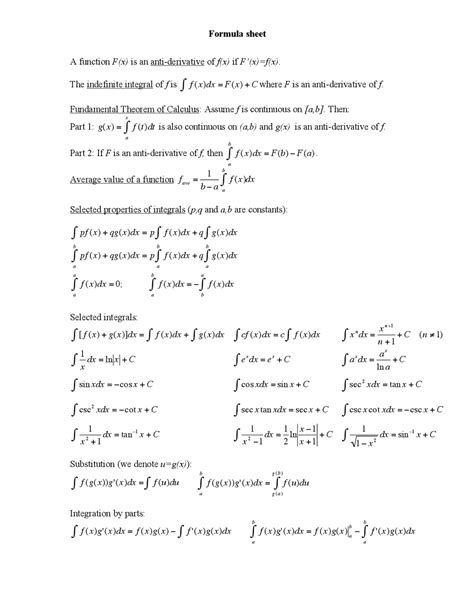 Formula sheet
A function F(x) is an anti-derivative of f(x) if F'(x)=f(x).
The indefinite integral of f is ∫ f(x)dx = F(x) + C where F is an anti-derivative of f.
Fundamental Theorem of Calculus: Assume f is continuous on [a,b]. Then:
Part 1: g(x) = ∫_a^b f(t)dt is also continuous on (a,b) and g(x) is an anti-derivative of f.
Part 2: If F is an anti-derivative of f, then ∫_a^b f(x)dx = F(b) − F(a).
Average value of a function f_ave = 1/(b−a) ∫_a^b f(x)dx
Selected properties of integrals (p,q and a,b are constants):
∫ pf(x) + qg(x)dx = p∫ f(x)dx + q∫ g(x)dx
∫_a^b pf(x) + qg(x)dx = p∫_a^b f(x)dx + q∫_a^b g(x)dx
∫_a^a f(x)dx = 0; ∫_b^a f(x)dx = −∫_a^b f(x)dx
Selected integrals:
∫[f(x) + g(x)]dx = ∫ f(x)dx + ∫ g(x)dx ∫ cf(x)dx = c∫ f(x)dx ∫ x^n dx = x^(n+1)/(n+1) + C (n ≠ 1)
∫ 1/x dx = ln|x| + C ∫ e^x dx = e^x + C ∫ a^x dx = a^x/ln a + C
∫ sin xdx = −cos x + C ∫ cos xdx = sin x + C ∫ sec² xdx = tan x + C
∫ csc² xdx = −cot x + C ∫ sec x tan xdx = sec x + C ∫ csc x cot xdx = −csc x + C
∫ 1/(x²+1) dx = tan⁻¹ x + C ∫ 1/(x²−1) dx = 1/2 ln|(x−1)/(x+1)| + C ∫ 1/√(1−x²) dx = sin⁻¹ x + C
Substitution (we denote u=g(x)):
∫ f(g(x))g'(x)dx = ∫ f(u)du ∫_a^b f(g(x))g'(x)dx = ∫_g(a)^g(b) f(u)du
Integration by parts:
∫ f(x)g'(x)dx = f(x)g(x) − ∫ f'(x)g(x)dx ∫_a^b f(x)g'(x)dx = f(x)g(x)|_a^b − ∫_a^b f'(x)g(x)dx